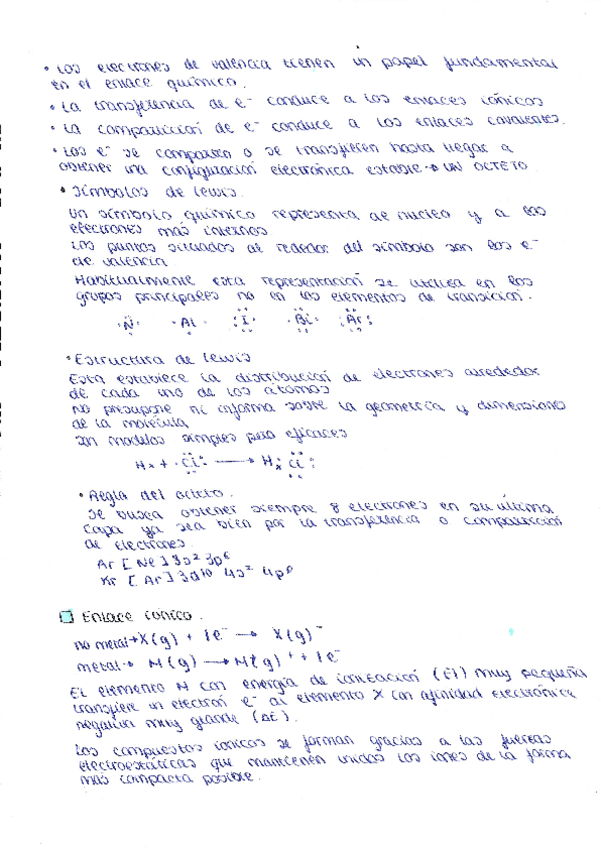 • Los electrones de valencia tienen un papel fundamental
en el enlace químico.
• La transferencia de e⁻ conduce a los enlaces iónicos
• La compartición de e⁻ conduce a los enlaces covalentes.
• Los e⁻ se comparten o se transfieren hasta llegar a
obtener una configuración electrónica estable → UN OCTETO
• Símbolos de Lewis.
Un símbolo químico representa al núcleo y a los
electrones más internos
Los puntos situados al rededor del símbolo son los e⁻
de valencia
Habitualmente esta representación se utiliza en los
grupos principales no en los elementos de transición.
N Al I Bi Ar
• Estructura de Lewis
Esta establece la distribución de electrones alrededor
de cada uno de los átomos
No presupone ni informa sobre la geometría y dimensiones
de la molécula
Son modelos simples pero eficaces
H x + · Cl : → H x Cl :
• Regla del octeto.
Se busca obtener siempre 8 electrones en su última
capa ya sea bien por la transferencia o compartición
de electrones.
Ar [Ne] 3s² 3p⁶
Kr [Ar] 3d¹⁰ 4s² 4p⁶
Enlace iónico.
no metal → X(g) + 1e⁻ → X(g)⁻
metal → M(g) → M(g)⁺ + 1e⁻
El elemento M con energía de ionización (EI) muy pequeña
transfiere un electrón e⁻ al elemento X con afinidad electrónica
negativa muy grande (ΔE).
Los compuestos iónicos se forman gracias a las fuerzas
electroestáticas que mantienen unidos los iones de la forma
más compacta posible.